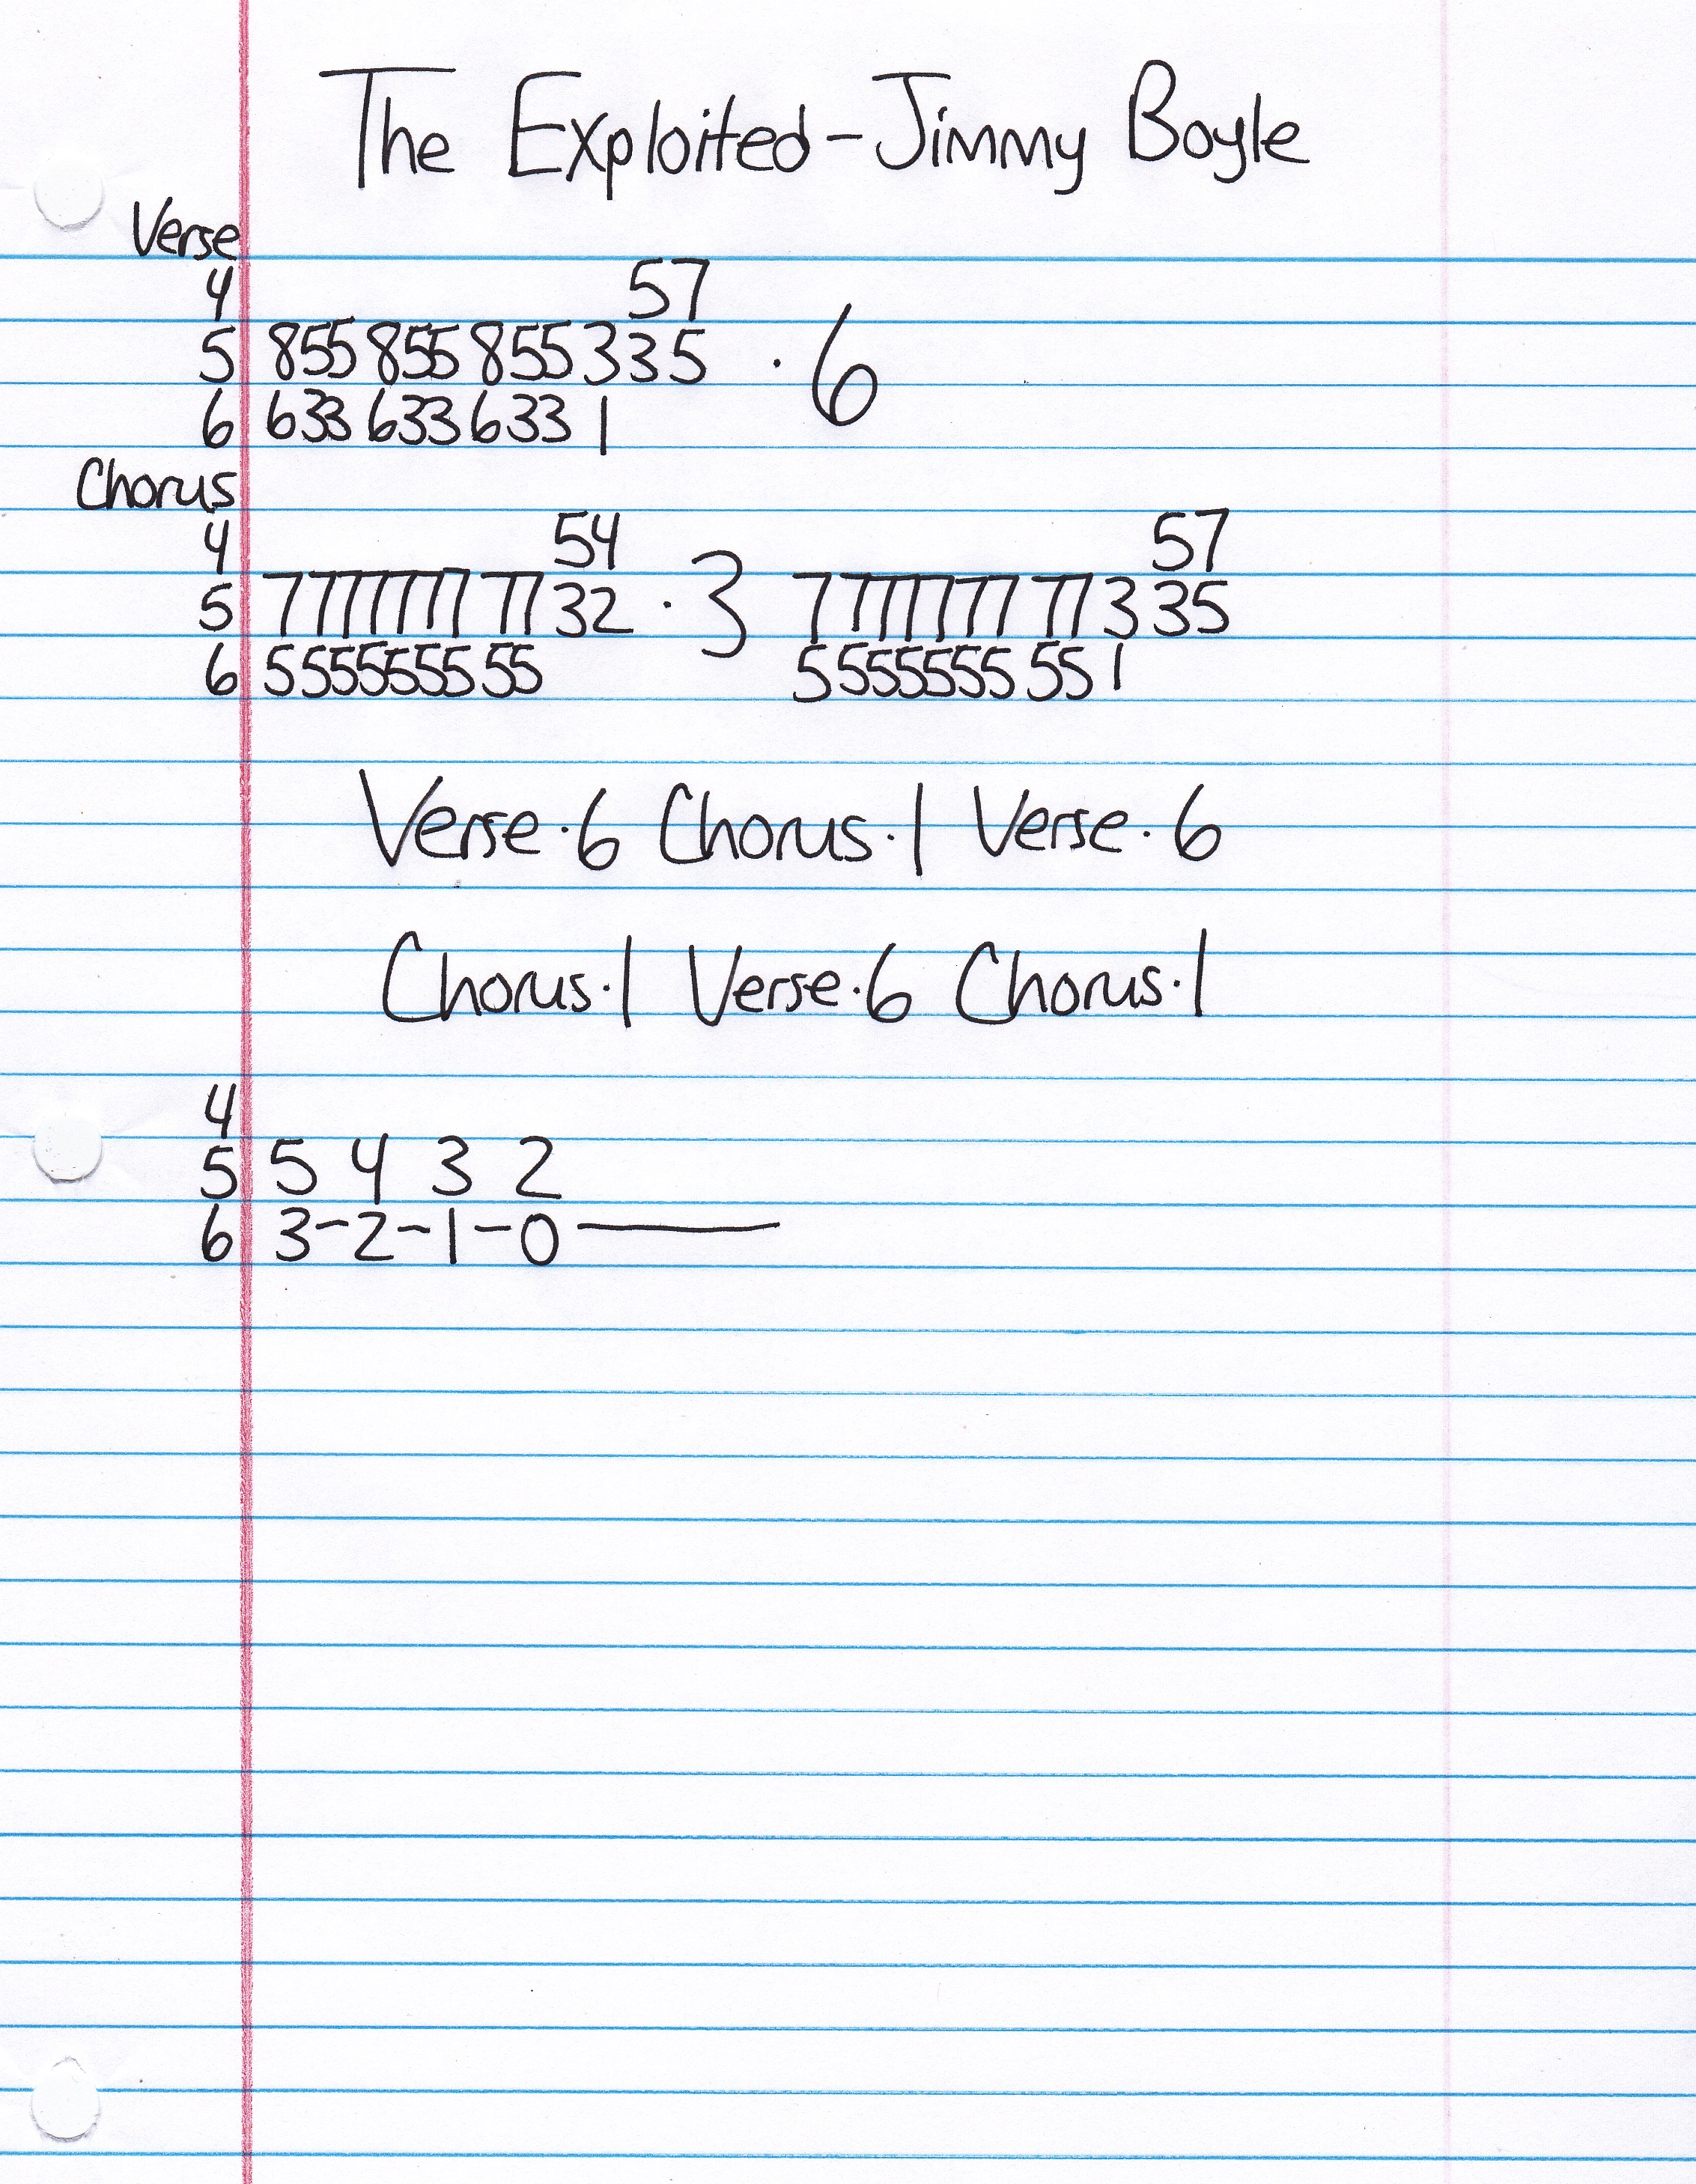 The Exploited - Jimmy Boyle
Verse
4 57
5 855 855 855 3 3 5 · 6
6 633 633 633 1
Chorus
4 54 57
5 7777777 77 32 · 3 7777777 77 3 35
6 5555555 55 5555555 55 1
Verse · 6 Chorus · 1 Verse · 6
Chorus · 1 Verse · 6 Chorus · 1
4
5 5 4 3 2
6 3-2-1-0—